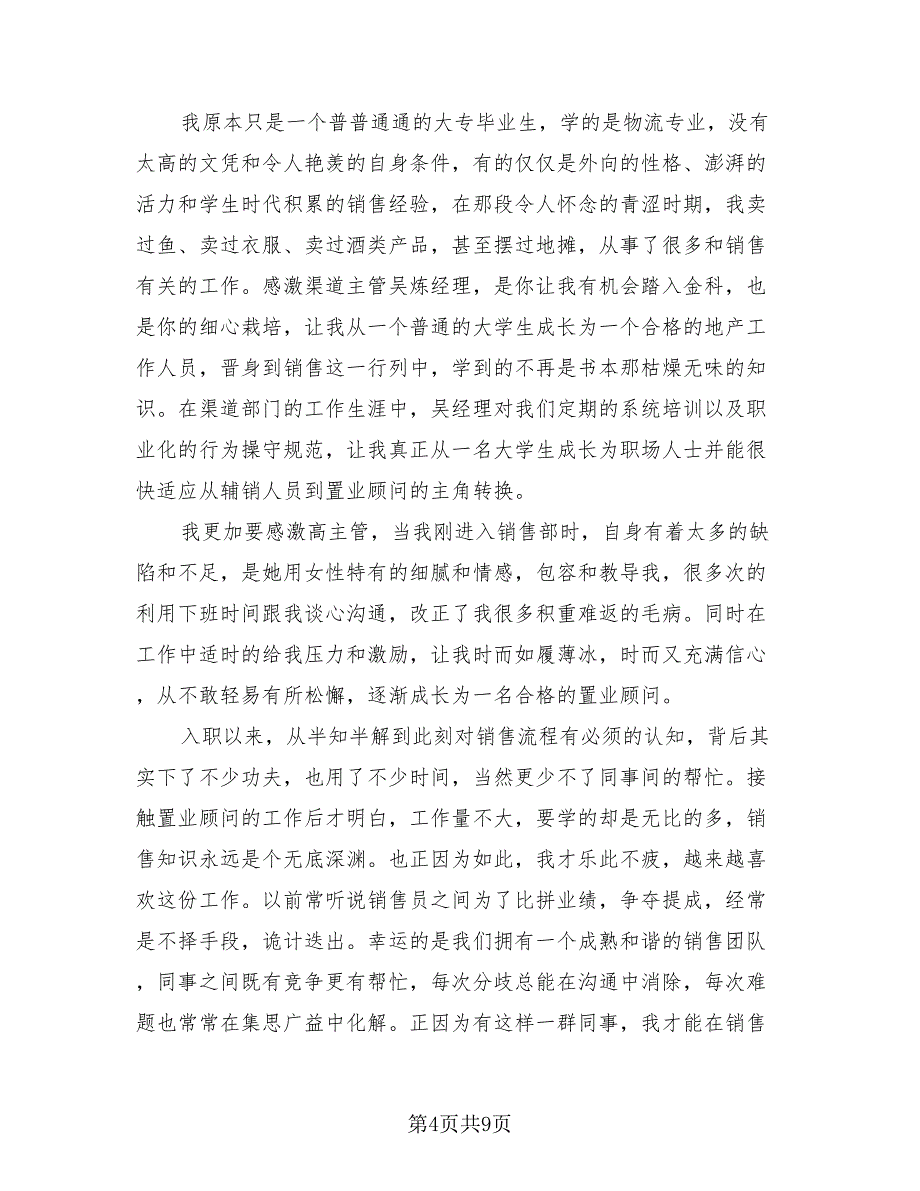 我原本只是一个普普通通的大专毕业生，学的是物流专业，没有
太高的文凭和令人艳羡的自身条件，有的仅仅是外向的性格、澎湃的
活力和学生时代积累的销售经验，在那段令人怀念的青涩时期，我卖
过鱼、卖过衣服、卖过酒类产品，甚至摆过地摊，从事了很多和销售
有关的工作。感激渠道主管吴炼经理，是你让我有机会踏入金科，也
是你的细心栽培，让我从一个普通的大学生成长为一个合格的地产工
作人员，晋身到销售这一行列中，学到的不再是书本那枯燥无味的知
识。在渠道部门的工作生涯中，吴经理对我们定期的系统培训以及职
业化的行为操守规范，让我真正从一名大学生成长为职场人士并能很
快适应从辅销人员到置业顾问的主角转换。
我更加要感激高主管，当我刚进入销售部时，自身有着太多的缺
陷和不足，是她用女性特有的细腻和情感，包容和教导我，很多次的
利用下班时间跟我谈心沟通，改正了我很多积重难返的毛病。同时在
工作中适时的给我压力和激励，让我时而如履薄冰，时而又充满信心
，从不敢轻易有所松懈，逐渐成长为一名合格的置业顾问。
入职以来，从半知半解到此刻对销售流程有必须的认知，背后其
实下了不少功夫，也用了不少时间，当然更少不了同事间的帮忙。接
触置业顾问的工作后才明白，工作量不大，要学的却是无比的多，销
售知识永远是个无底深渊。也正因为如此，我才乐此不疲，越来越喜
欢这份工作。以前常听说销售员之间为了比拼业绩，争夺提成，经常
是不择手段，诡计迭出。幸运的是我们拥有一个成熟和谐的销售团队
，同事之间既有竞争更有帮忙，每次分歧总能在沟通中消除，每次难
题也常常在集思广益中化解。正因为有这样一群同事，我才能在销售
第4页共9页